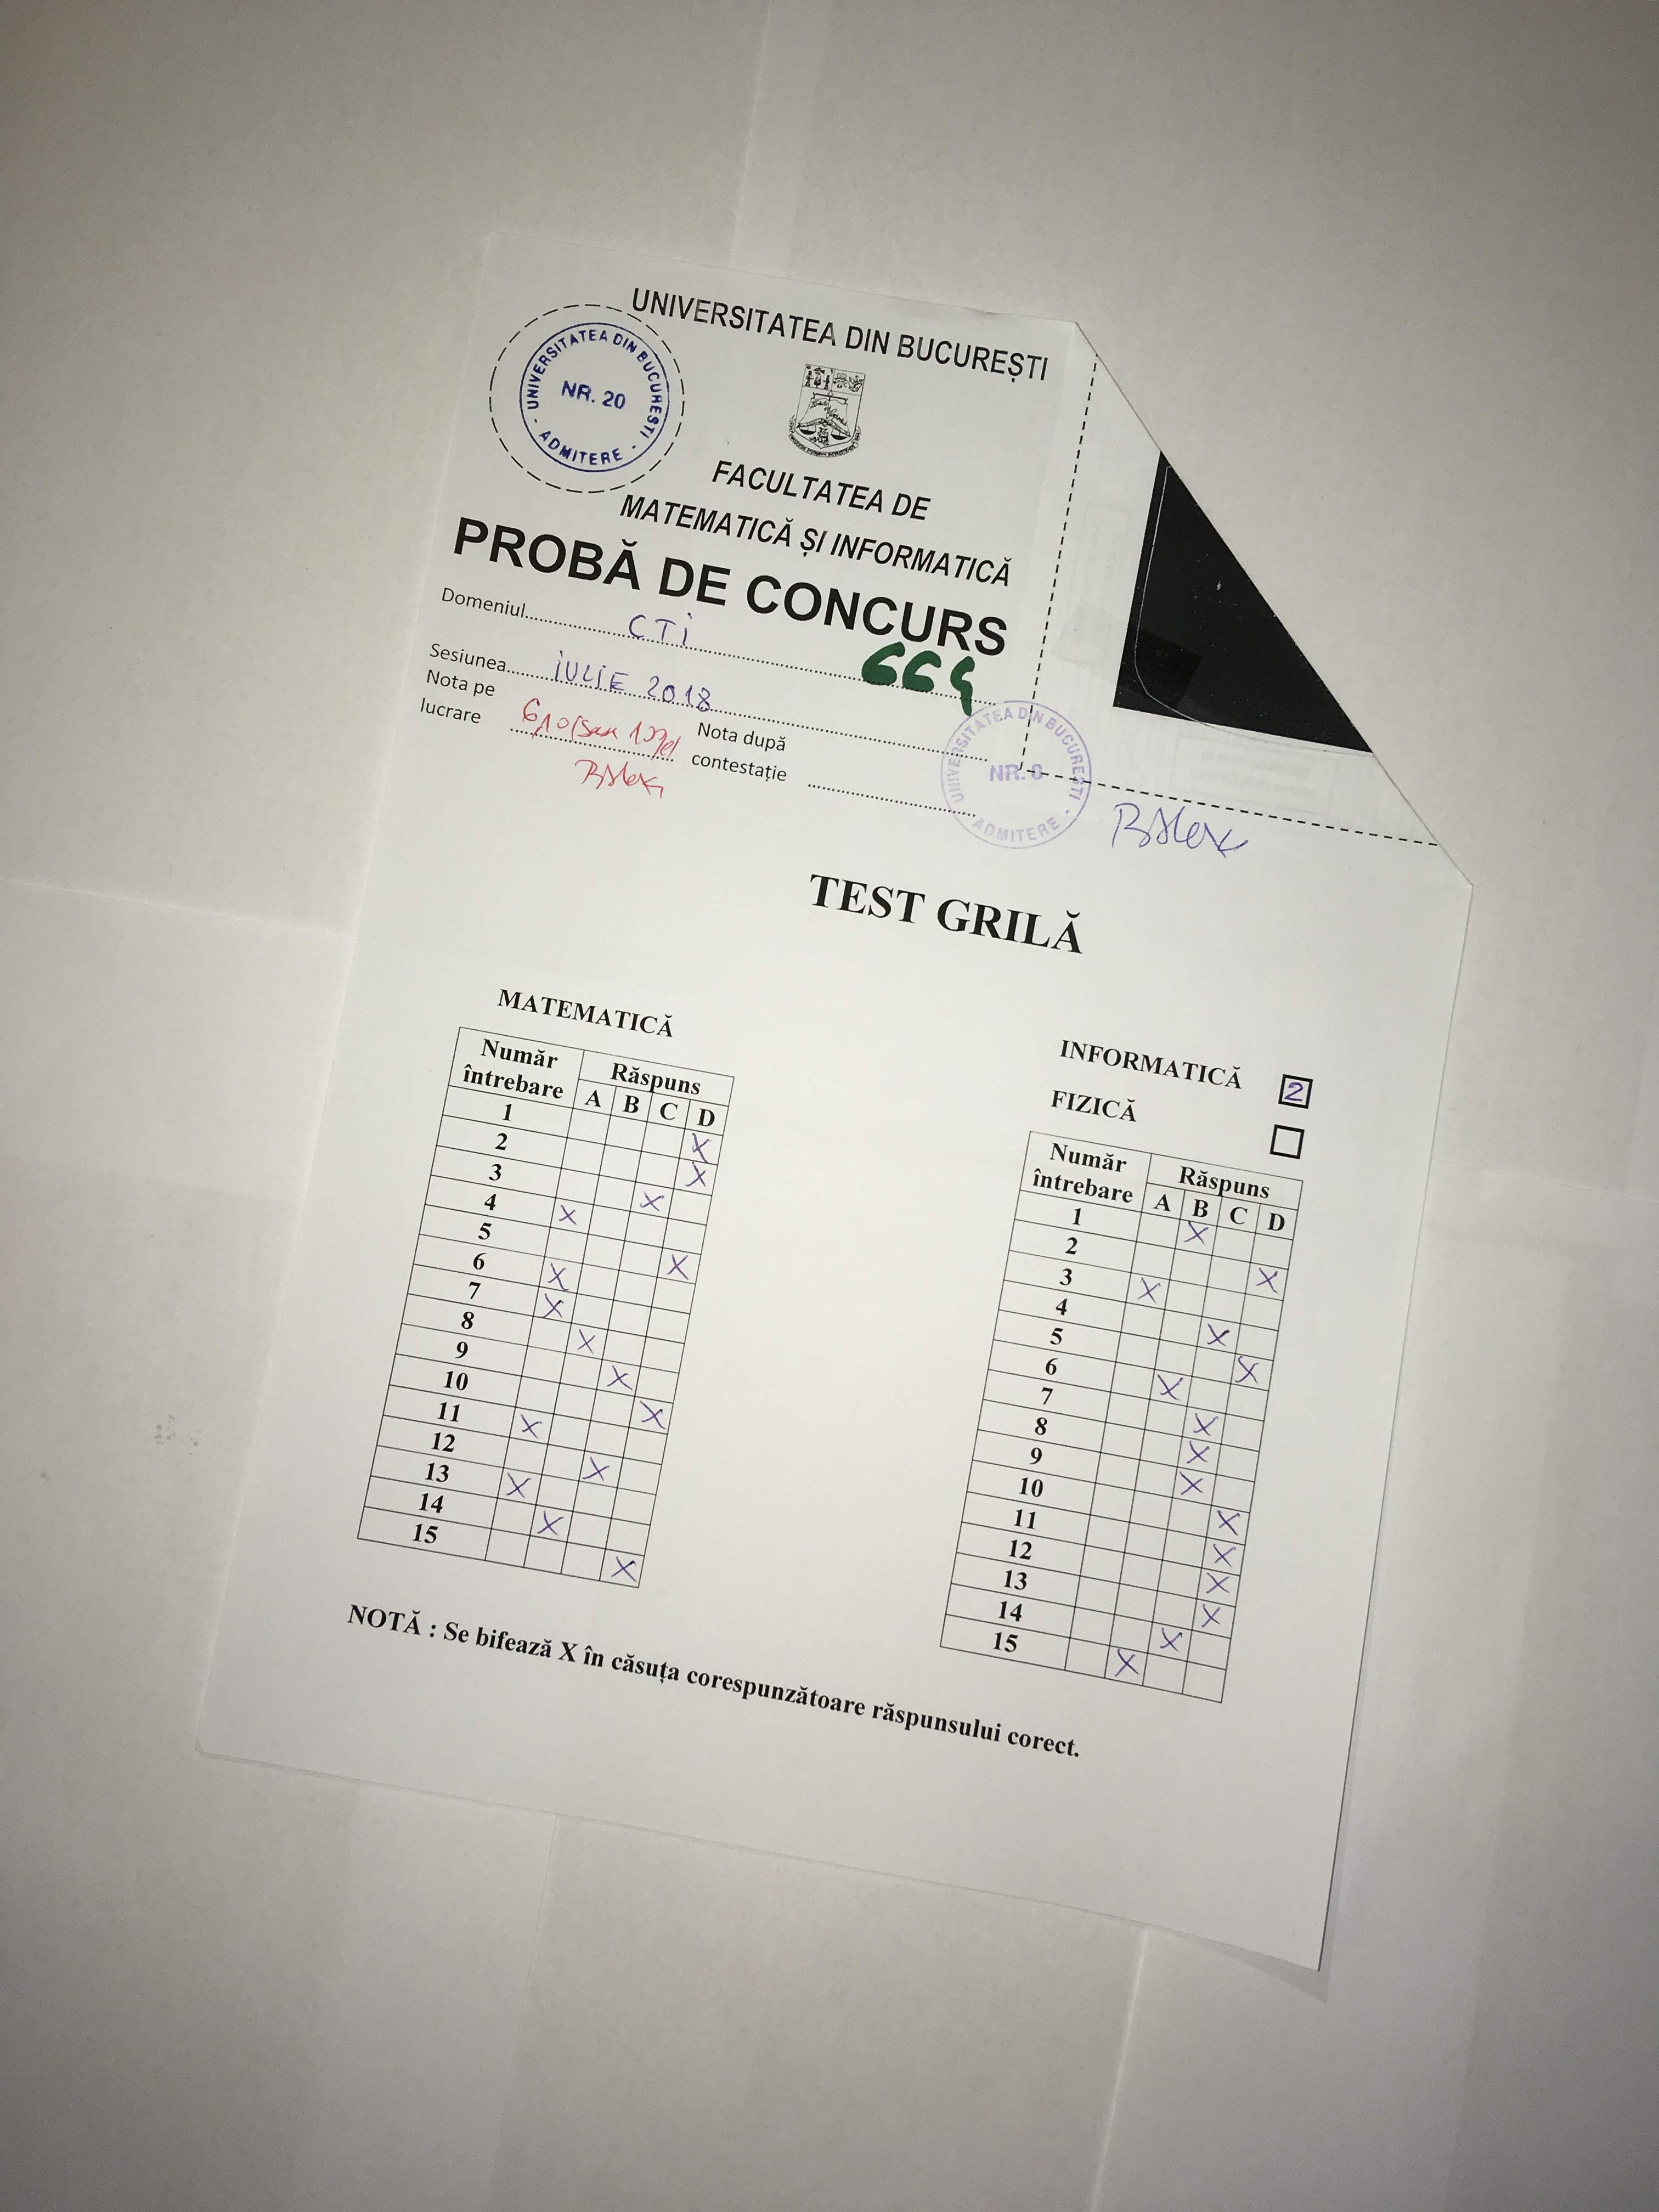 UNIVERSITATEA DIN BUCUREȘTI
- UNIVERSITATEA DIN BUCUREȘTI -
NR. 20
ADMITERE
FACULTATEA DE
MATEMATICĂ ȘI INFORMATICĂ
PROBĂ DE CONCURS
Domeniul CTI
664
Sesiunea IULIE 2018
Nota pe
lucrare
Nota după
contestație
UNIVERSITATEA DIN BUCUREȘTI
NR. 8
ADMITERE -
TEST GRILĂ
MATEMATICĂ
Număr
întrebare
Răspuns
A B C D
1 X
2 X
3 X
4 X
5 X
6 X
7 X
8 X
9 X
10 X
11 X
12 X
13 X
14 X
15 X
INFORMATICĂ 2
FIZICĂ
Număr
întrebare
Răspuns
A B C D
1 X
2 X
3 X
4 X
5 X
6 X
7 X
8 X
9 X
10 X
11 X
12 X
13 X
14 X
15 X
NOTĂ : Se bifează X în căsuța corespunzătoare răspunsului corect.